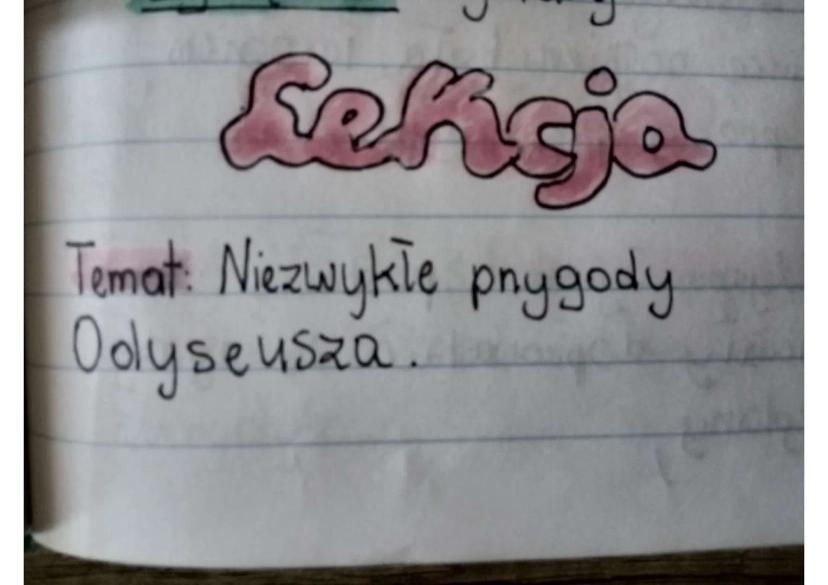 Lekcja
Temat: Niezwykłe przygody
Odyseusza.